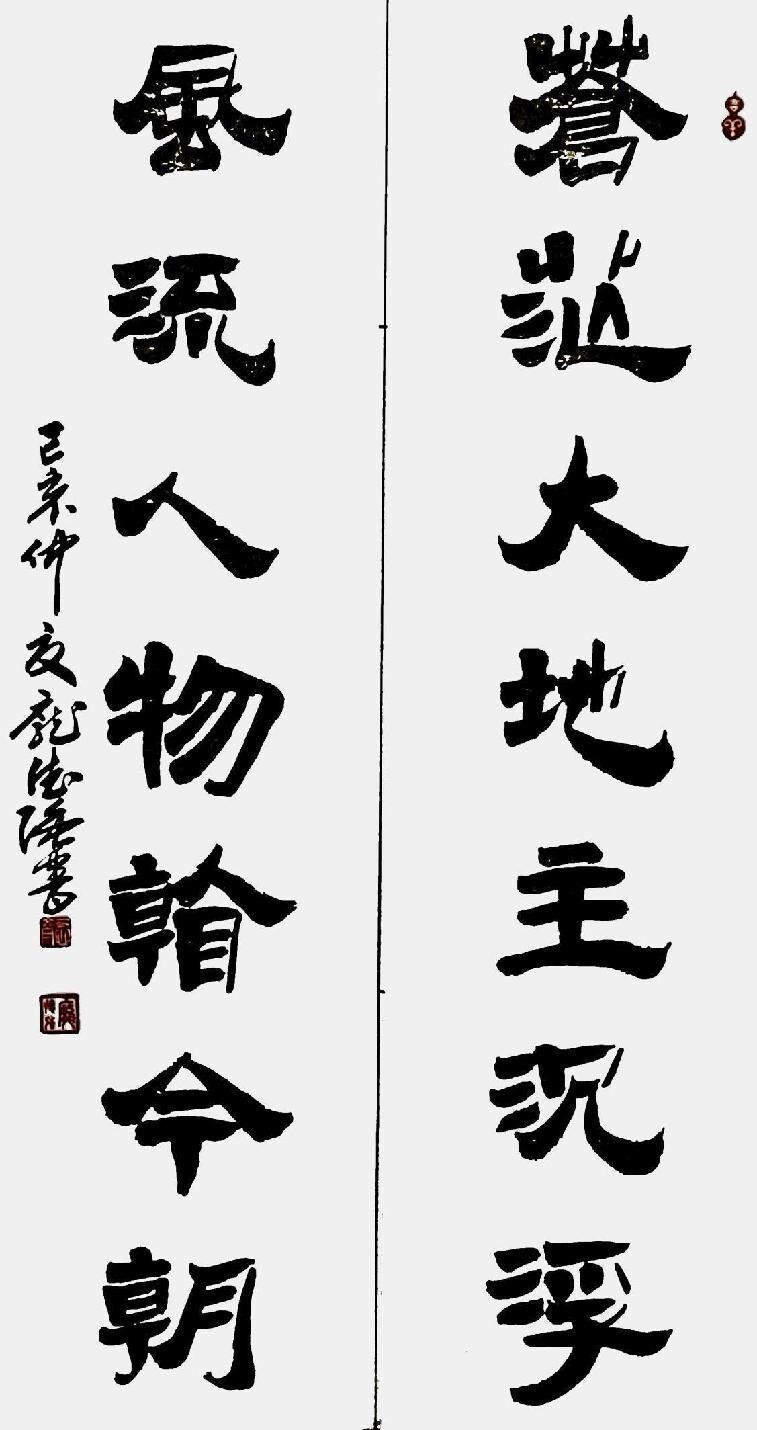 蒼茫大地主沉浮
風流人物看今朝
己亥仲夏龍德隆書